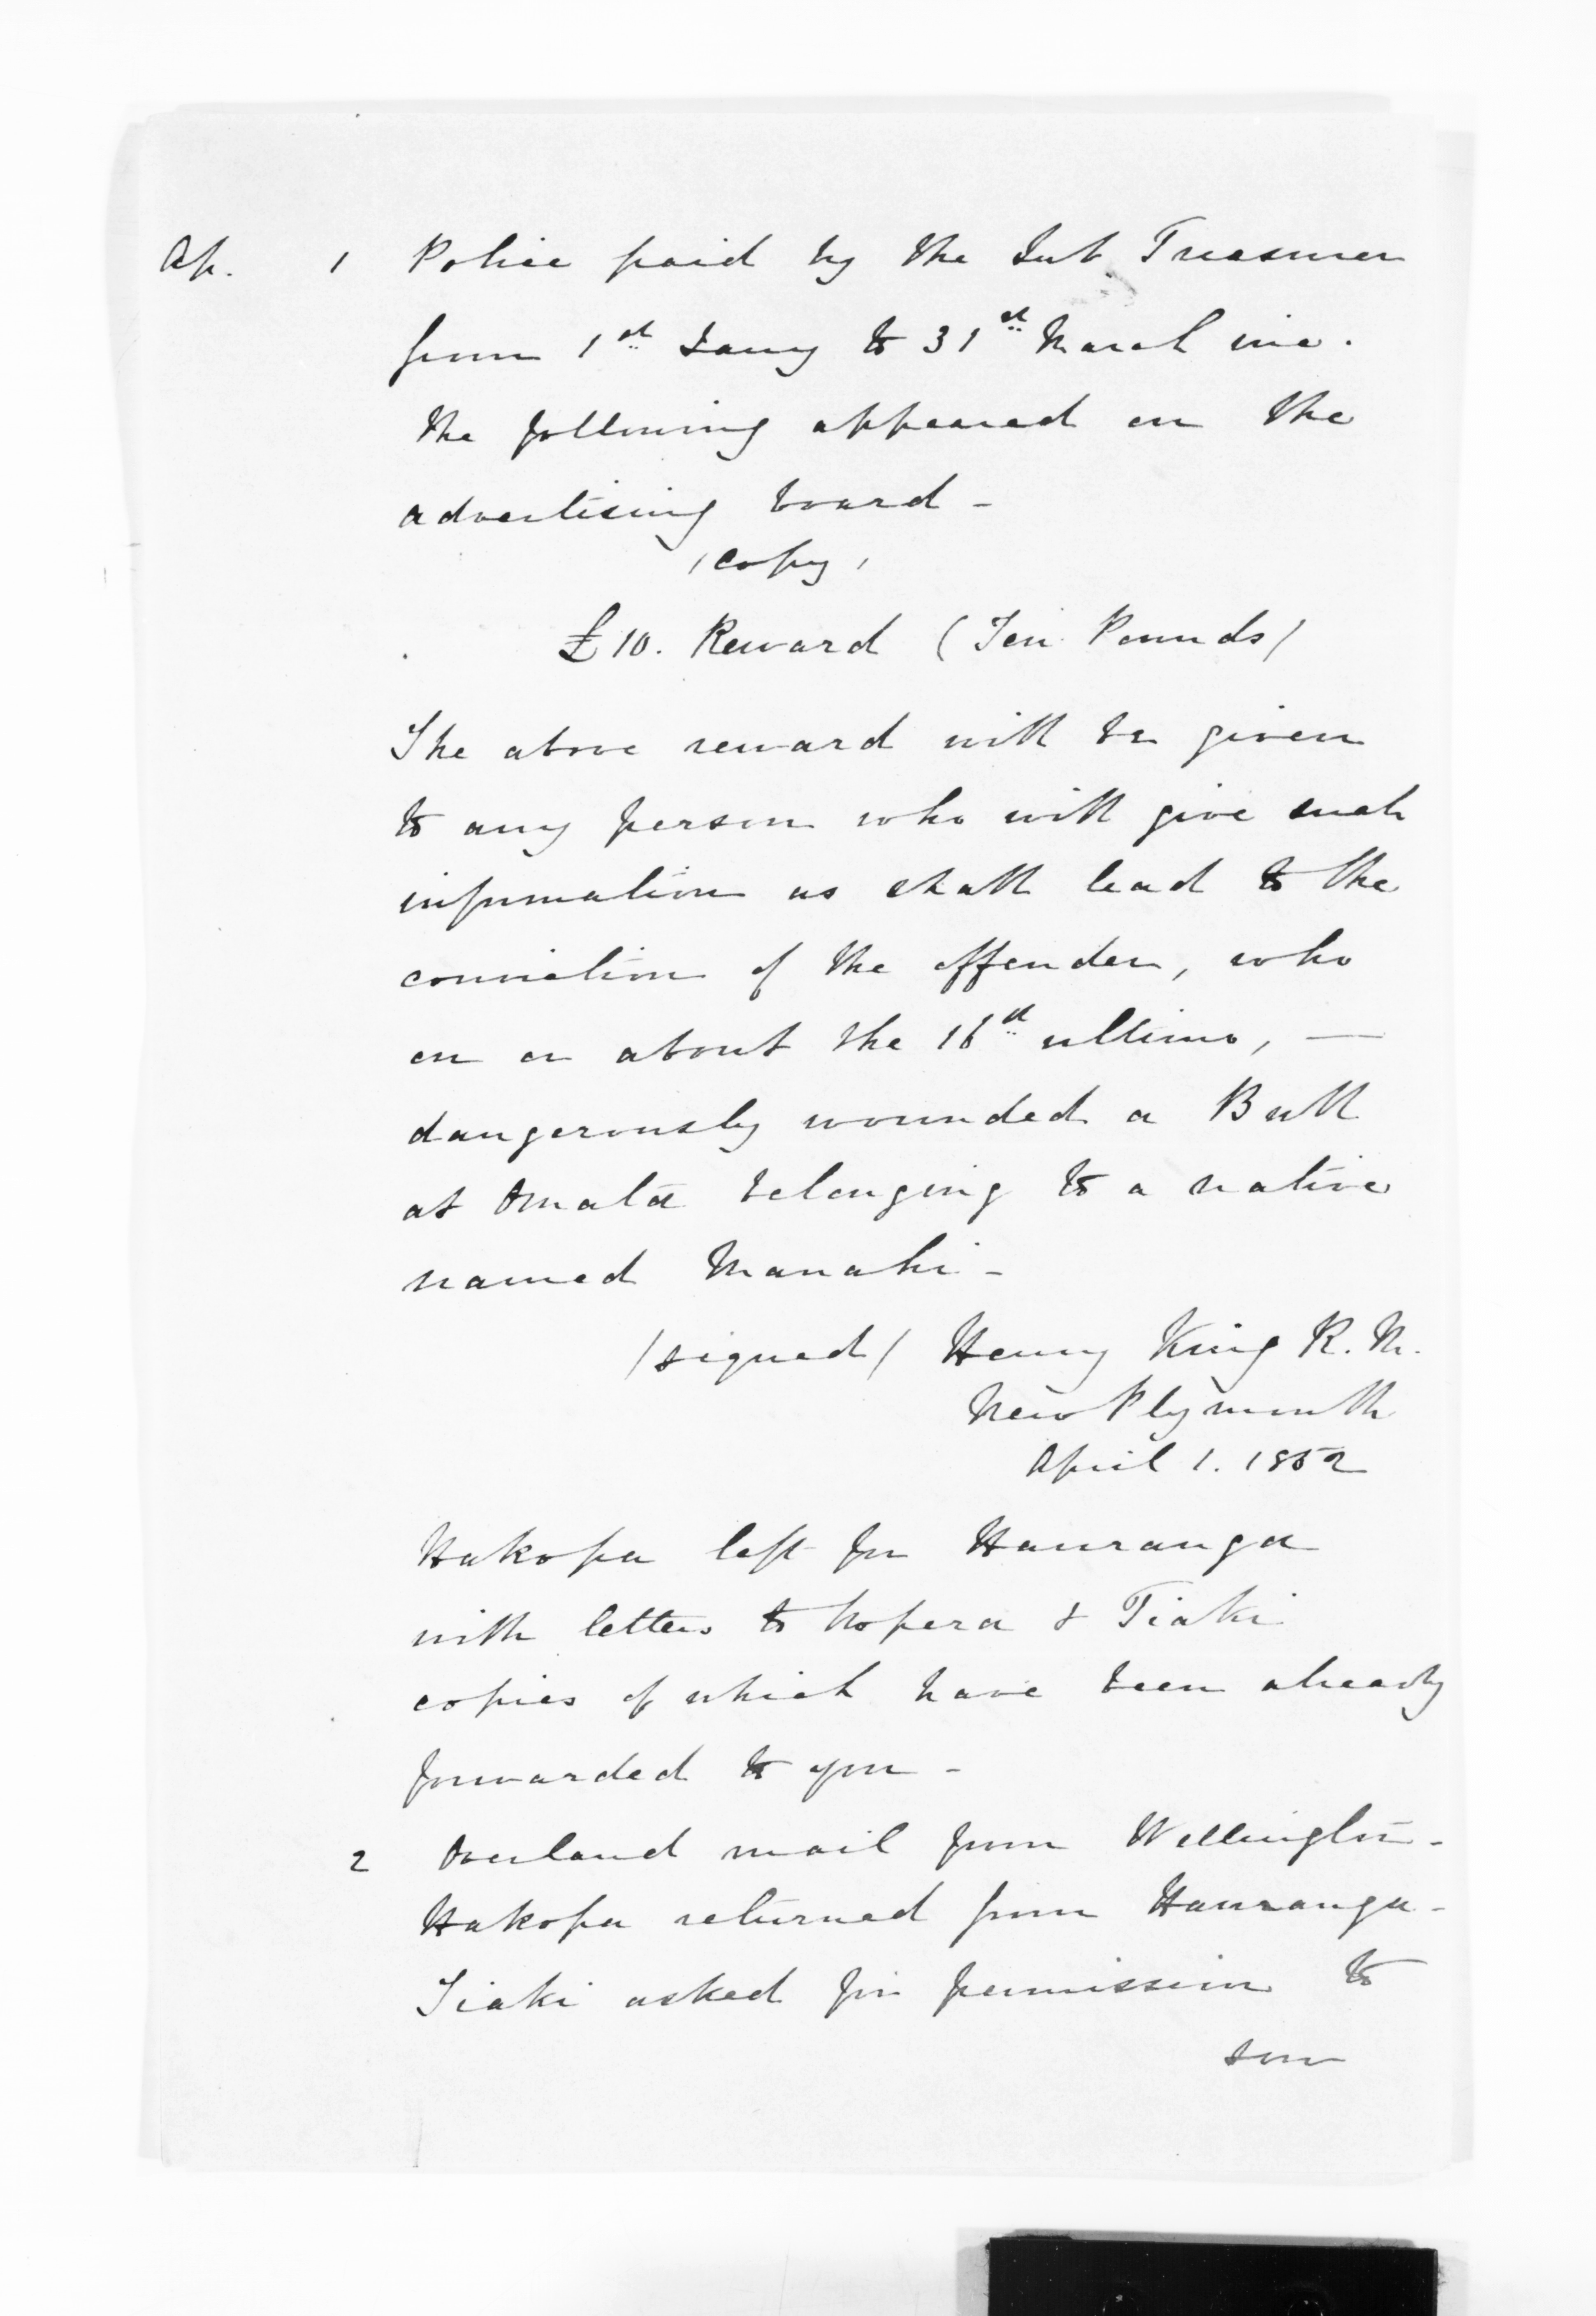 Ap. 1 Police paid by the Sub Treasurer
from 1st Jany to 31st March inc.
The following appeared on the
advertising board -
/Copy/
£10. Reward (Ten Pounds)
The above reward will be given
to any person who will give such
information as shall lead to the
conviction of the offender, who
on or about the 16th ultimo, —
dangerously wounded a Bull
at Omata belonging to a native
named Manahi -
/signed/ Henry King R. M.
New Plymouth
April 1. 1852
Hakopa left for Hauranga
with letters to Nopera & Tiaki
copies of which have been already
forwarded to you -
2 Overland mail from Wellington -
Hakopa returned from Hauranga -
Tiaki asked for permission to
sow